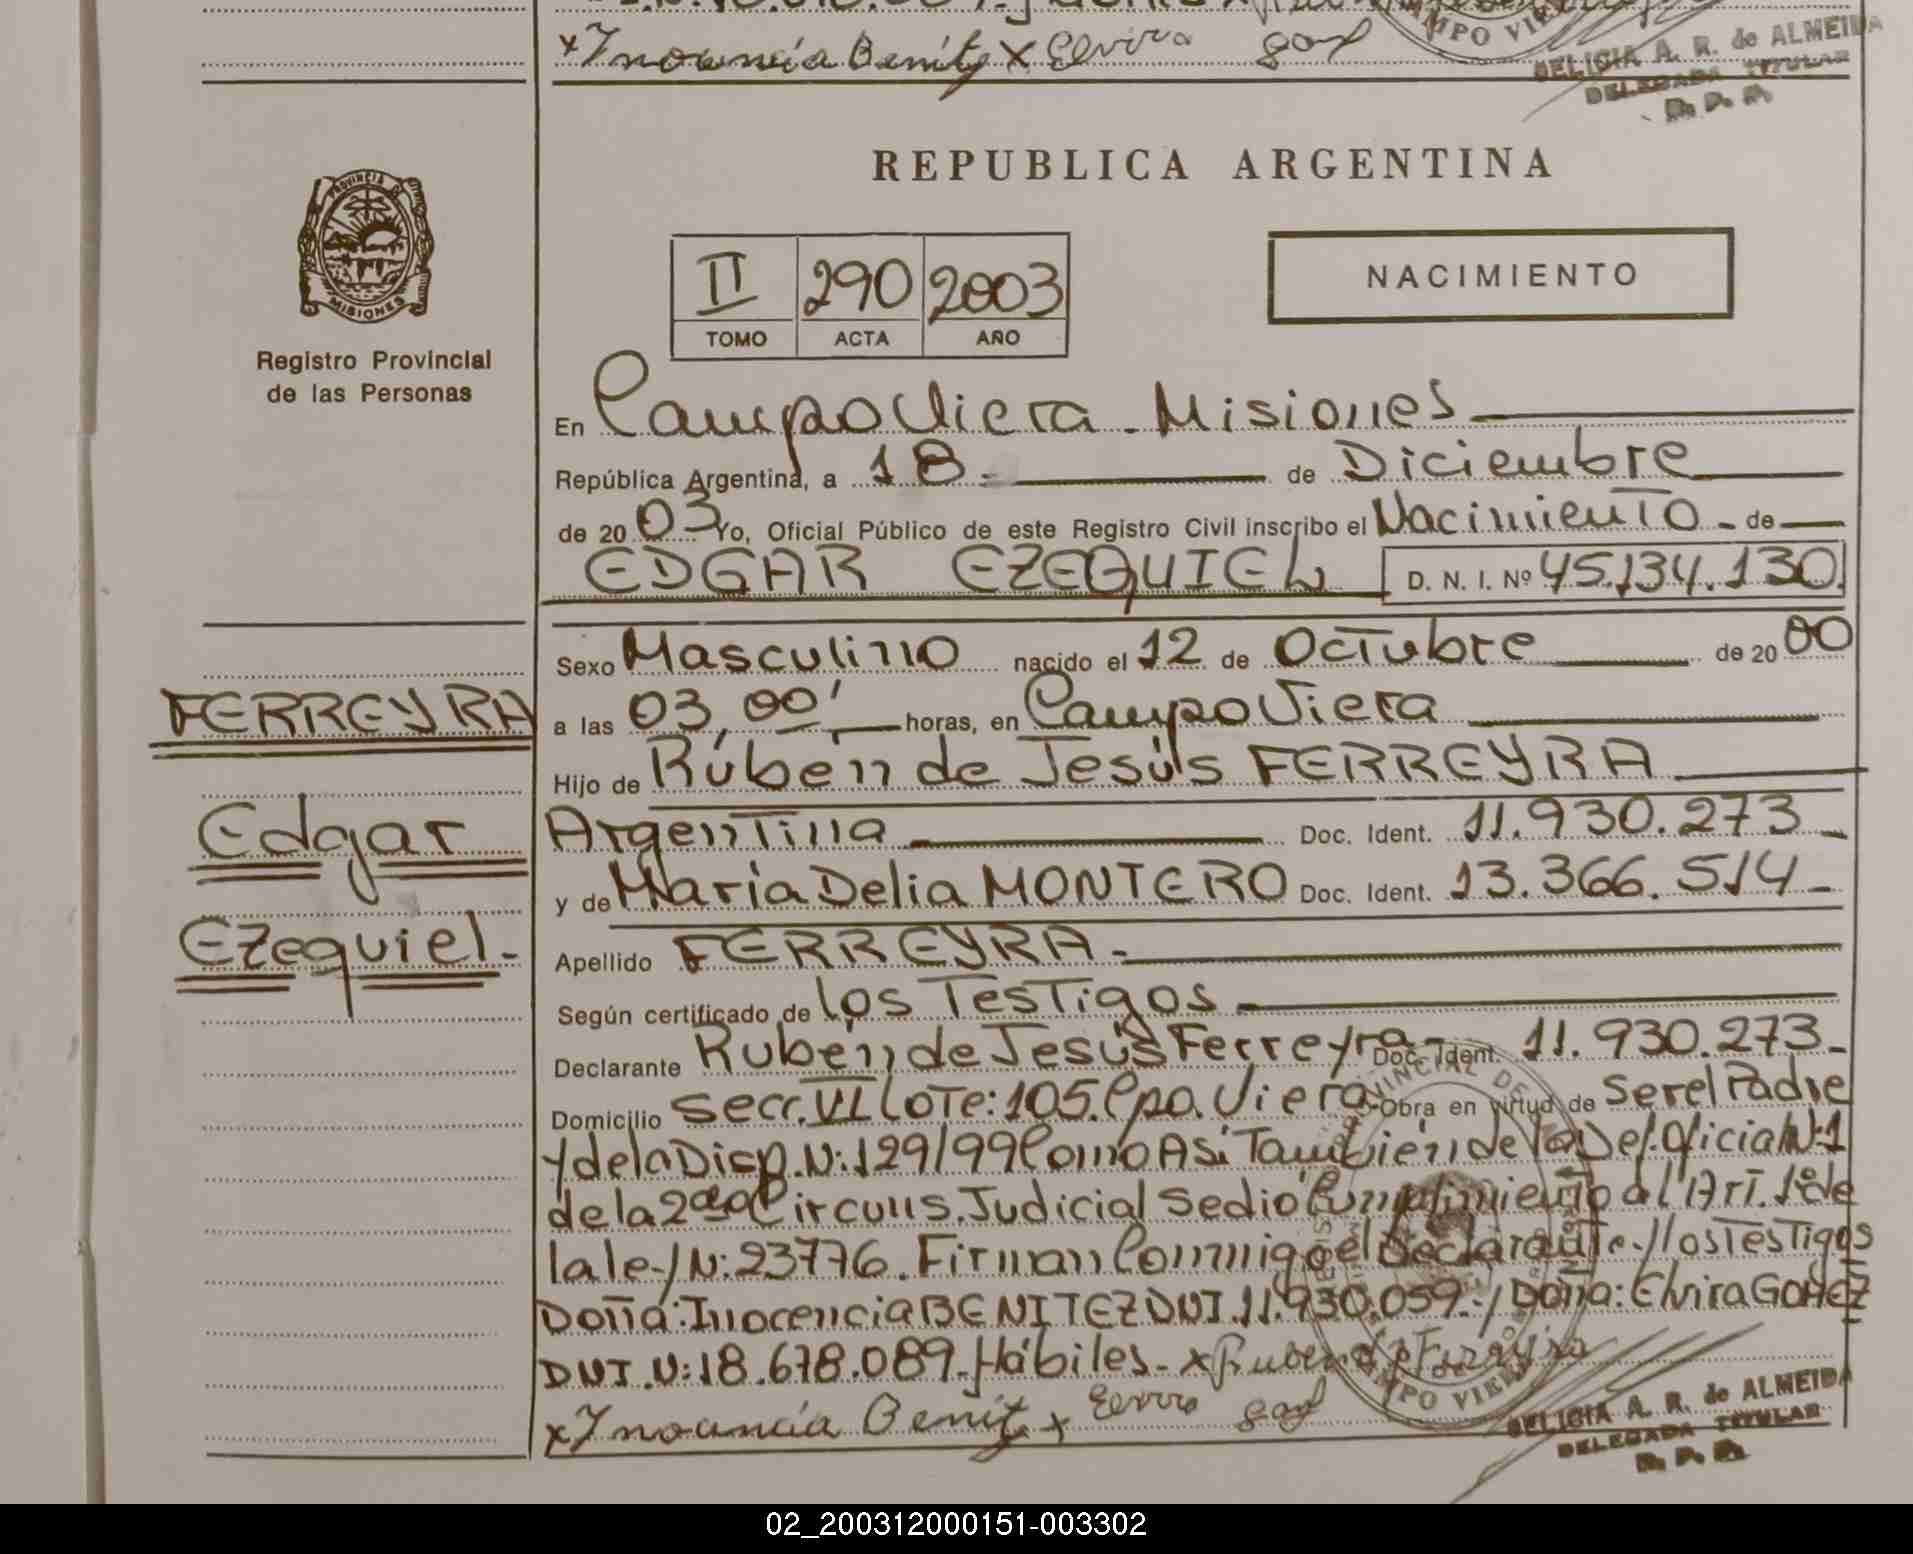 x Inocencia Benitez x Elvira
DELICIA A. R. de ALMEIDA
DELEGADA TITULAR
R. P. P.
REPUBLICA ARGENTINA
PROVINCIA DE
MISIONES
Registro Provincial
de las Personas
II 290 2003
TOMO ACTA AÑO
NACIMIENTO
En Campo Viera - Misiones
República Argentina, a 18 - de Diciembre
de 20 03 Yo, Oficial Público de este Registro Civil inscribo el Nacimiento - de
EDGAR EZEQUIEL D. N. I. Nº 45.134.130
Sexo Masculino nacido el 12 de Octubre de 20 00
FERREYRA
a las 03,00' horas, en Campo Viera
Hijo de Rúben de Jesús FERREYRA
Edgar
Argentina Doc. Ident. 11.930.273
y de Maria Delia MONTERO Doc. Ident. 13.366.514 -
Ezequiel -
Apellido FERREYRA -
Según certificado de los Testigos
Declarante Rubén de Jesús Ferreyra - Doc. Ident. 11.930.273 -
Domicilio Secc. VII Lote: 105. Cpo. Viera - Obra en virtud de Ser el Padre
y de la Disp. N: 129/99 Como Asi También de la Def. Oficial N: 1
de la 2da Circuns. Judicial Se dio Cumplimiento al Art. 1º de
la ley N: 23776. Firman Conmigo el Declarante y los Testigos
Doña: Inocencia BENITEZ DNI. 11.930.059 - y Doña: Elvira GOMEZ
DNI. N: 18.678.089 - Hábiles - x Ruben d Ferreyra
x Inocencia Benitez x Elvira
CAMPO VIERA
DELICIA A. R. de ALMEIDA
DELEGADA TITULAR
R. P. P.
02_200312000151-003302